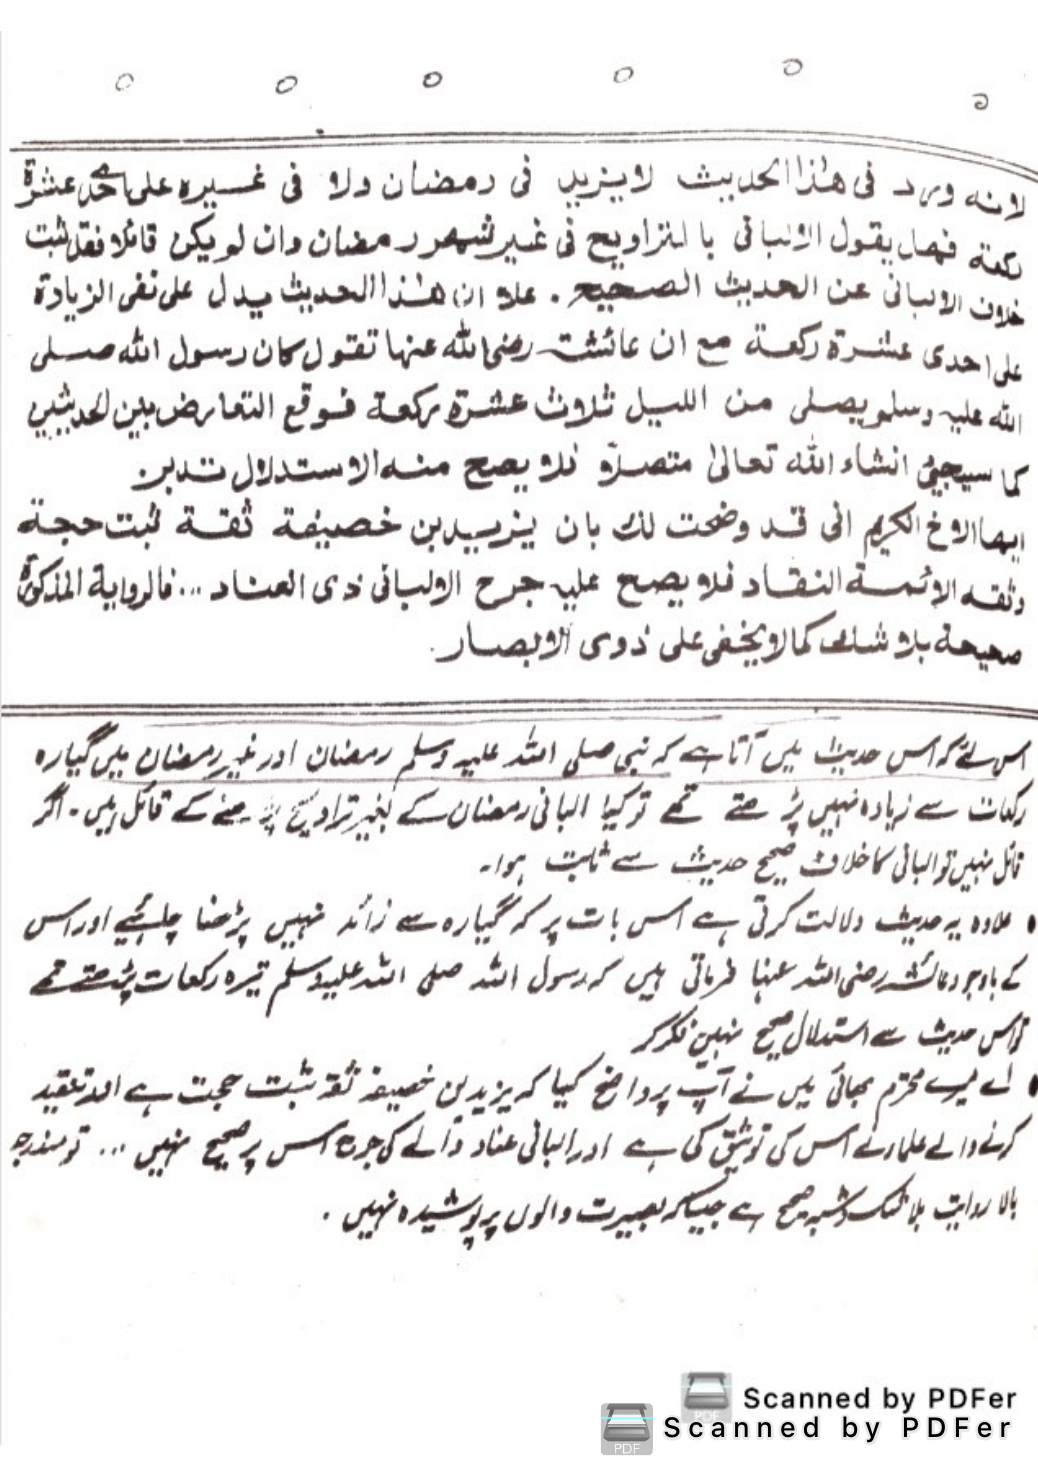 لانه ورد فی هٰذا الحدیث لا یزید فی رمضان ولا فی غیرہ علی احدی عشرة
رکعة فهل یقول الالبانی بالتراویح فی غیر شهر رمضان وان لم یکن قائلا فقد ثبت
خلاف الالبانی عن الحدیث الصحیح . علاوان هٰذا الحدیث یدل علی نفی الزیادة
علی احدی عشرة رکعة مع ان عائشة رضی الله عنها تقول کان رسول الله صلی
الله علیه وسلم یصلی من اللیل ثلاث عشرة رکعة فوقع التعارض بین الحدیثین
کما سیجیئ انشاء الله تعالیٰ متصلاً فلا یصح منه الاستدلال تدبر.
ایها الاخ الکریم انی قد وضحت لك بان یزید بن خصیفة ثقة ثبت حجة
وثقه الائمة النقاد فلا یصح علیه جرح الالبانی ذی العناد ... فالروایة المذکورة
صحیحة بلا شك کما لا یخفی علی ذوی الابصار.
اس لئے کہ اس حدیث میں آتا ہے کہ نبی صلی اللہ علیہ وسلم رمضان اور غیر رمضان میں گیارہ
رکعات سے زیادہ نہیں پڑھتے تھے تو کیا البانی رمضان کے بغیر تراویح پڑھنے کے قائل ہیں ۔ اگر
قائل نہیں تو البانی کا خلاف صحیح حدیث سے ثابت ہوا۔
• علاوہ یہ حدیث دلالت کرتی ہے اس بات پر کہ گیارہ سے زائد نہیں پڑھنا چاہئیے اور اس
کے باوجود عائشہ رضی اللہ عنہا فرماتی ہیں کہ رسول اللہ صلی اللہ علیہ وسلم تیرہ رکعات پڑھتے تھے
تو اس حدیث سے استدلال صحیح نہیں فکر کر
• اے میرے محترم بھائی میں نے آپ پر واضح کیا کہ یزید بن خصیفہ ثقہ ثبت حجت ہے اور تنقید
کرنے والے علماء نے اس کی توثیق کی ہے اور البانی عناد والے کی جرح اس پر صحیح نہیں ... تو مندرجہ
بالا روایت بلا شک و شبہ صحیح ہے جیسا کہ بصیرت والوں پر پوشیدہ نہیں .
Scanned by PDFer
Scanned by PDFer
PDF